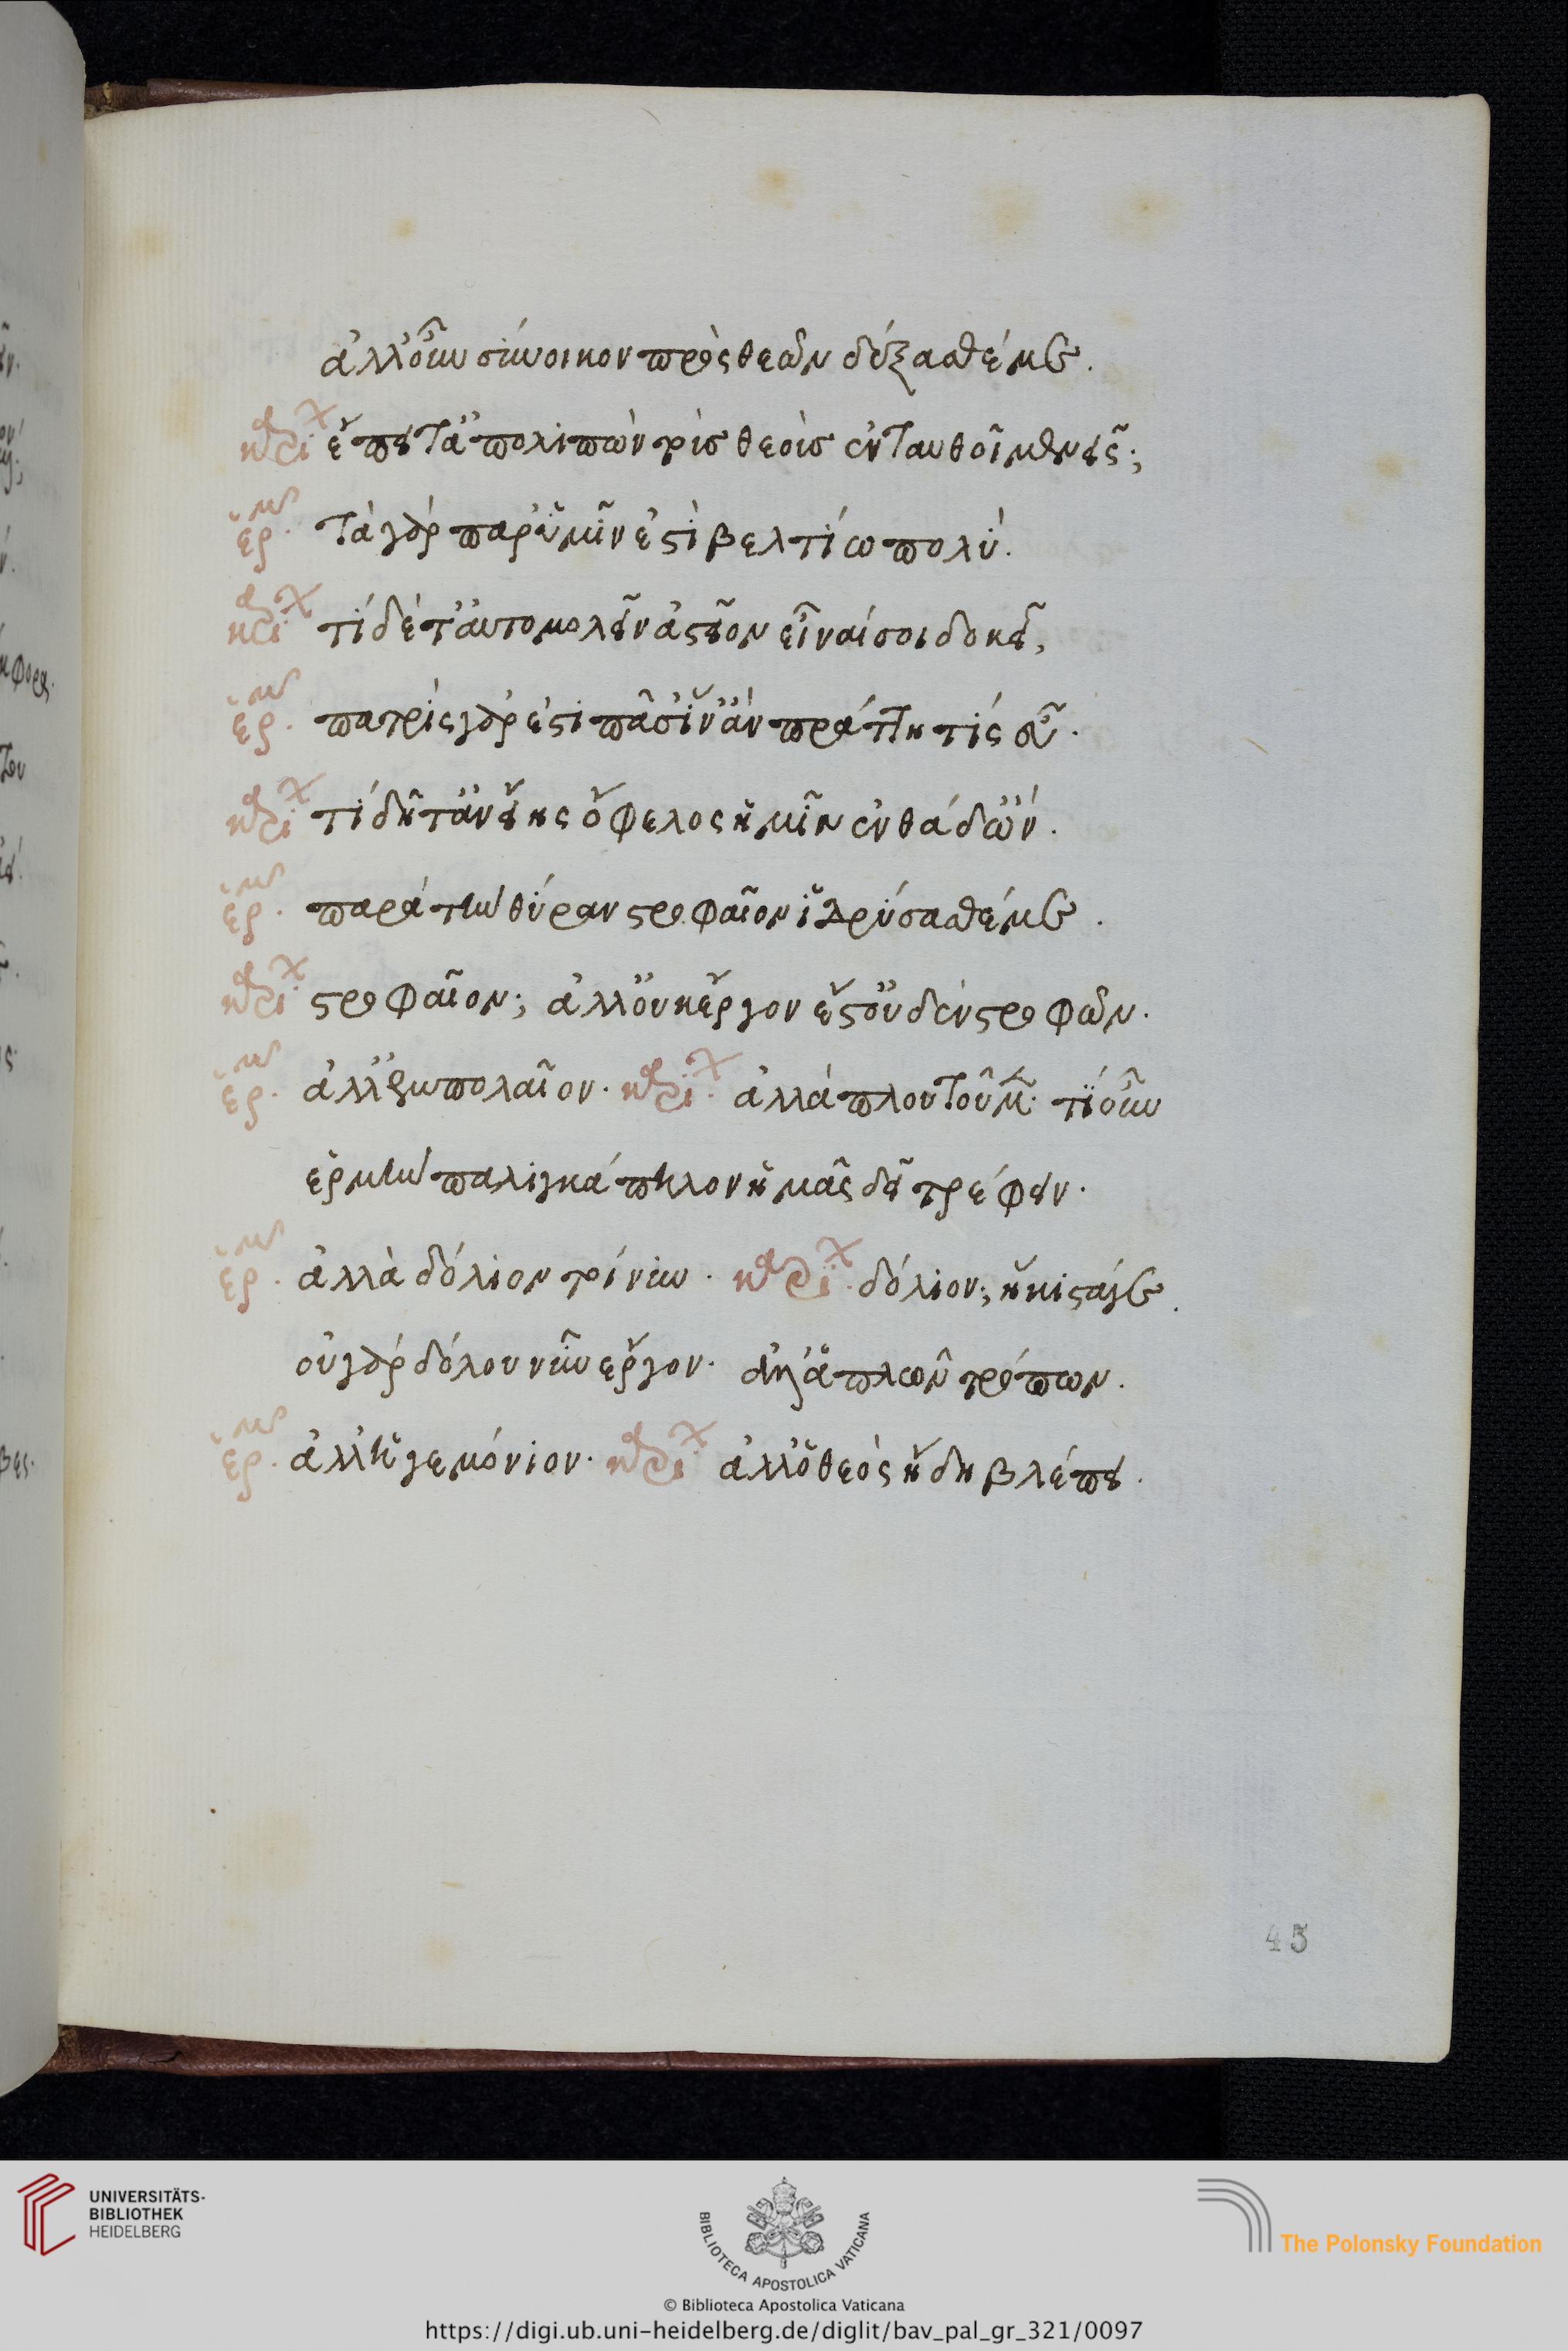 ἀλλ' οὖν σύνοικον πρὸς θεῶν δέξασθέ με.
καρι^χ ἔπειτ' ἀπολιπὼν τοὺς θεοὺς ἐνταυθοῖ μενεῖς;
ἑρμ. τὰ γὰρ παρ' ὑμῖν ἐστὶ βελτίω πολύ.
καρι^χ τί δέ ταὐτομολεῖν ἀστεῖον εἶναί σοι δοκεῖ;
ἑρμ. πατρὶς γάρ ἐστι πᾶσ' ἵν' ἂν πράττη τίς εὖ.
καρι^χ τί δῆτ' ἂν εἴης ὄφελος ἡμῖν ἐνθάδ' ὤν.
ἑρμ. παρὰ τὴν θύραν στροφαῖον ἱδρύσασθέ με.
καρι^χ στροφαῖον; ἀλλ' οὐκ ἔργον ἔστ' οὐδὲν στροφῶν.
ἑρμ. ἀλλ' ἐμπολαῖον. καρι^χ. ἀλλὰ πλουτοῦμεν. τί οὖν
ἑρμῆν παλιγκάπηλον ἡμᾶς δεῖ τρέφειν.
ἑρμ. ἀλλὰ δόλιον τοίνυν. καρι^χ. δόλιον; ἥκιστά γε.
οὐ γὰρ δόλου νῦν ἔργον. ἀλλ' ἁπλῶν τρόπων.
ἑρμ. ἀλλ' ἡγεμόνιον. καρι^χ ἀλλ' ὁ θεὸς ἤδη βλέπει.
45
UNIVERSITÄTS-
BIBLIOTHEK
HEIDELBERG
BIBLIOTECA APOSTOLICA VATICANA
The Polonsky Foundation
© Biblioteca Apostolica Vaticana
https://digi.ub.uni-heidelberg.de/diglit/bav_pal_gr_321/0097